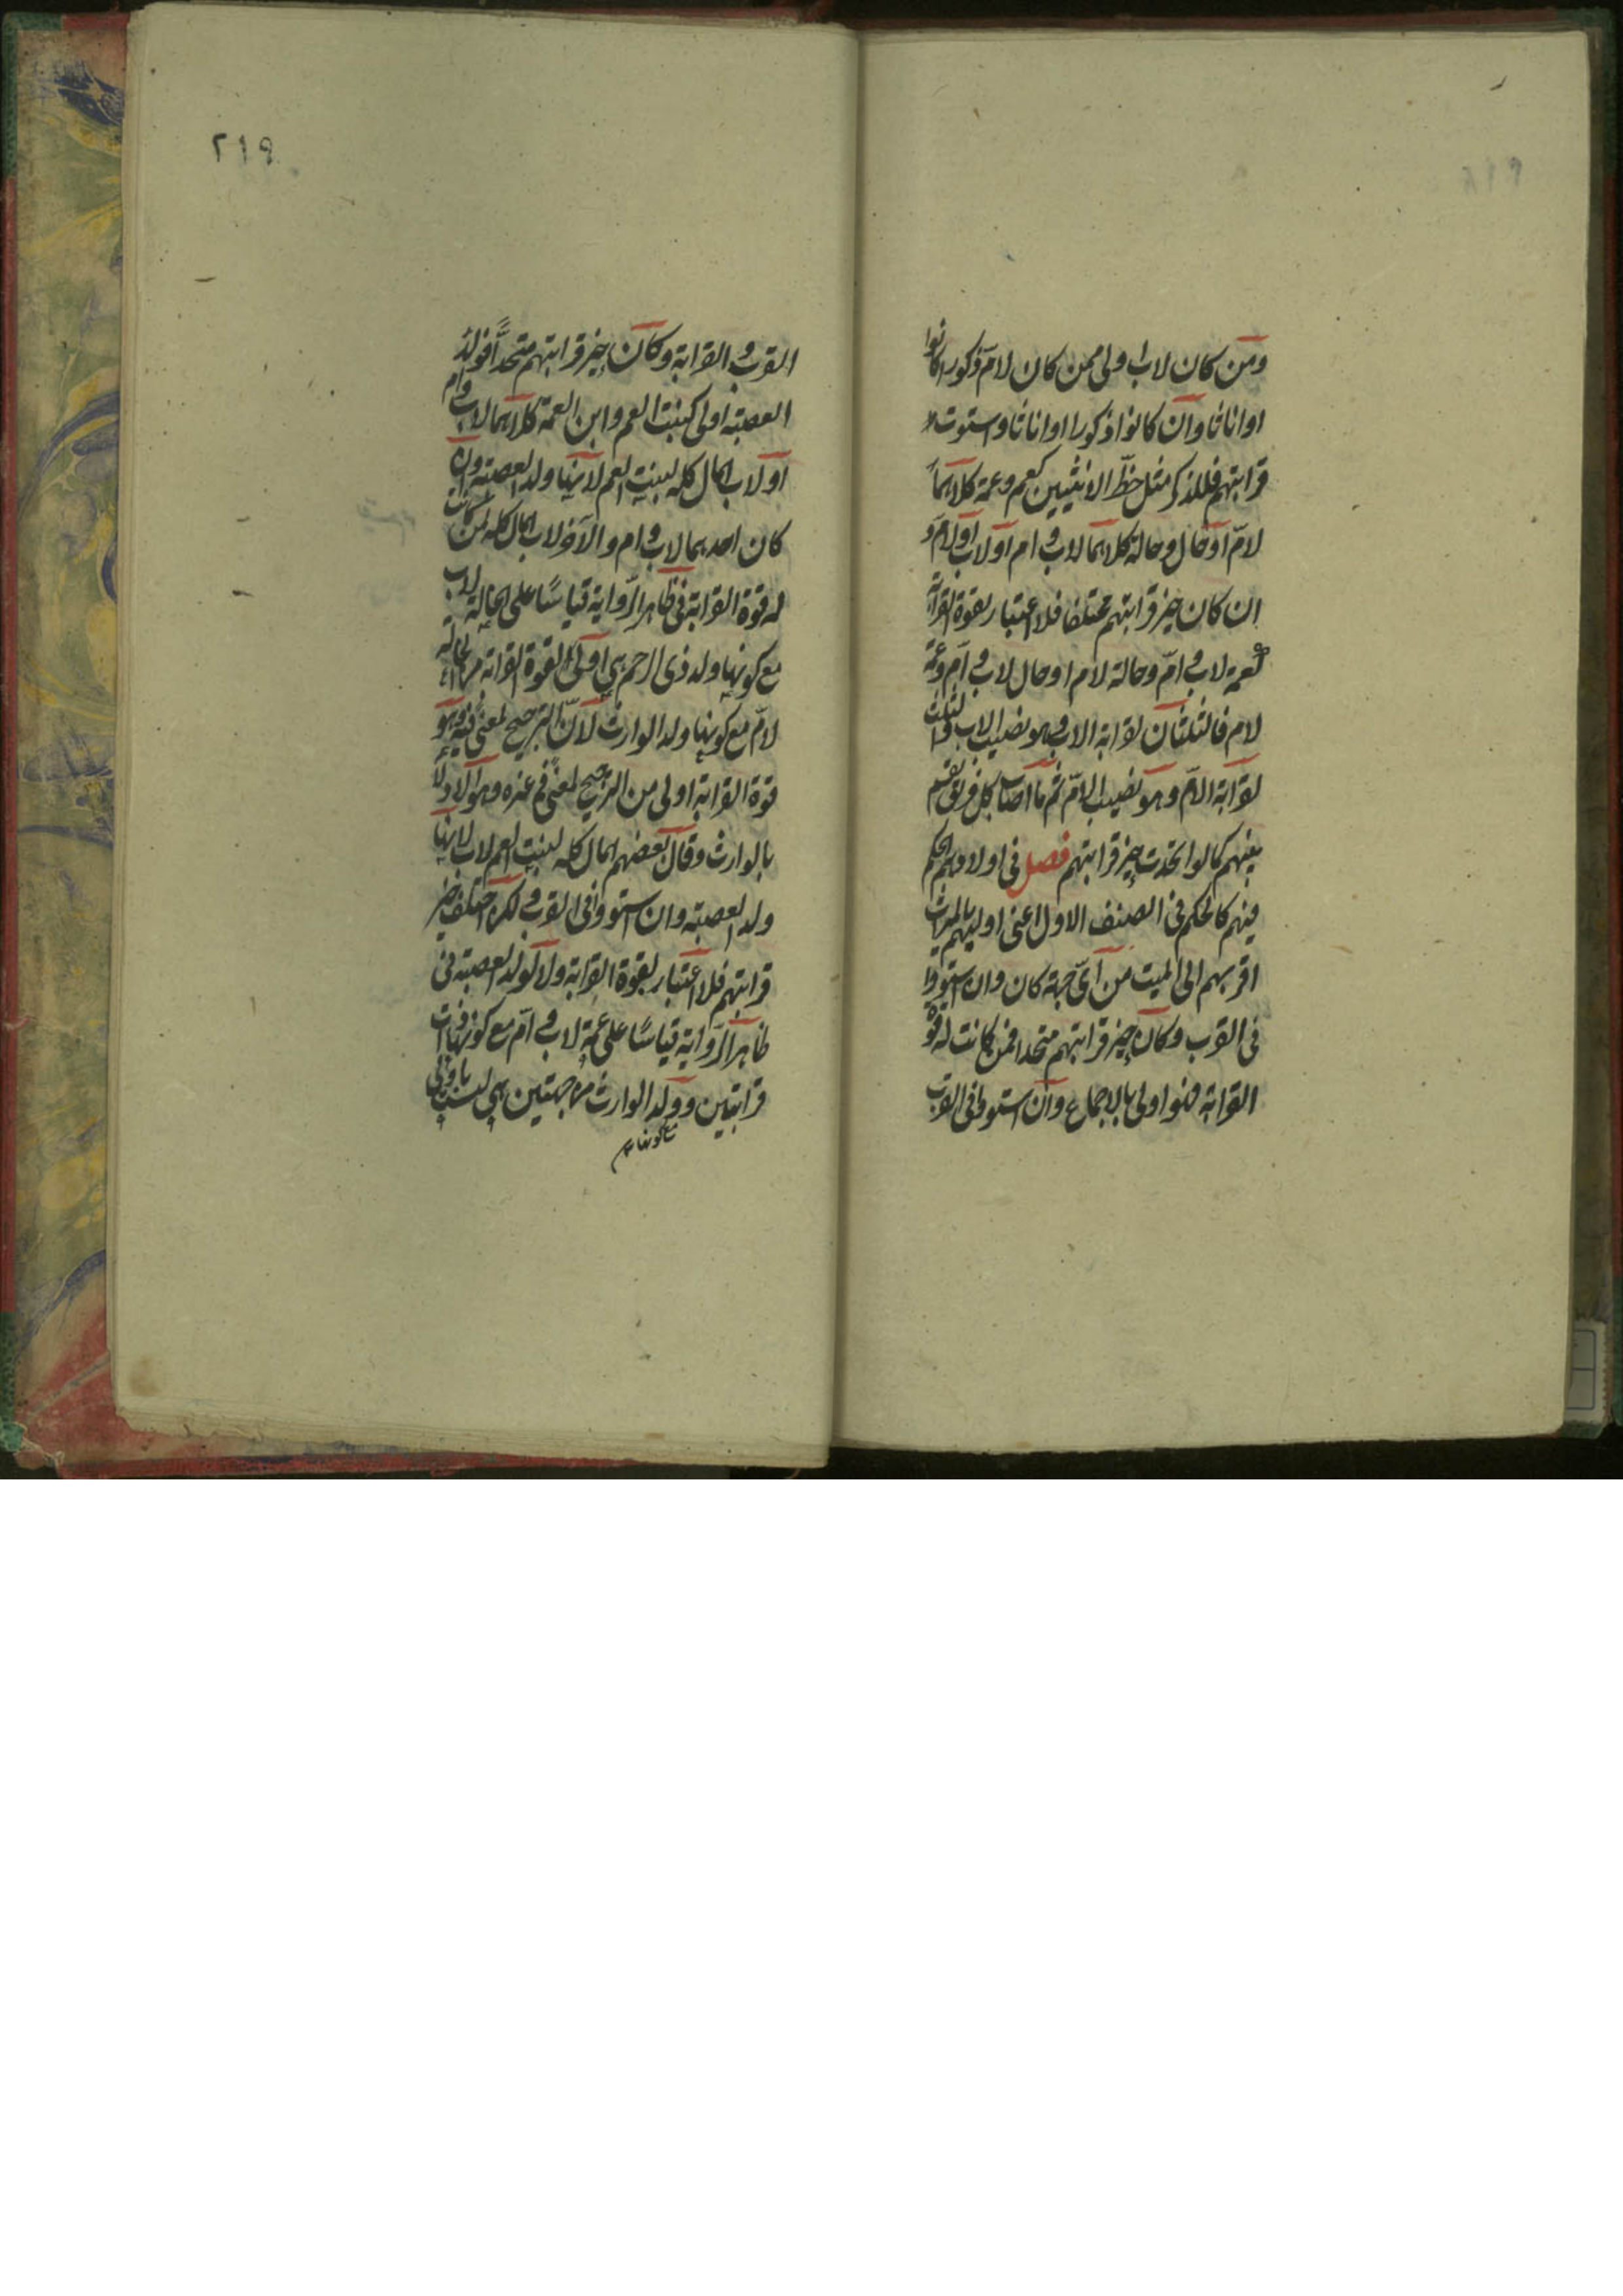 ومن كان لاب اولى ممن كان لام ذكورا كانوا
او اناثا وان كانوا ذكورا او اناثا واستوت
قرابتهم فللذكر مثل حظّ الانثيين كعم وعمة كلاهما
لامّ او خال وخالة كلاهما لاب وام او لاب او لام و
ان كان حيز قرابتهم مختلفا فلا اعتبار لقوة القرابة
كعمة لاب وامّ وخالة لام او خال لاب وام وعمة
لام فالثلثان لقرابة الاب وهو نصيب الاب والثلث
لقرابة الامّ وهو نصيب الامّ ثم ما اصاب كل فريق يقسم
بينهم كما لو اتحدت حيز قرابتهم فصل فى اولادهم الحكم
فيهم كالحكم فى الصنف الاول اعنى اوليهم بالميراث
اقربهم الى الميت من اىّ جهة كان وان استووا
فى القرب وكان حيز قرابتهم متحدا فمن كانت له قوة
القرابة فهو اولى بالاجماع وان استووا فى القرب
٢١٩
القرب والقرابة وكان حيز قرابتهم متحدًا فولد
العصبة اولى كبنت العم وابن العمة كلاهما لاب وام
او لاب المال كله لبنت العم لانها ولد العصبة وان
كان احدهما لاب وام والآخر لاب المال كله لمن كانت
له قوة القرابة فى ظاهر الرّواية قياسًا على خالة لاب
مع كونها ولد ذى الرحم هى اولى لقوة القرابة من الخالة
لامّ مع كونها ولد الوارث لانّ الترجيح لمعنًى فيه وهو
قوة القرابة اولى من الترجيح لمعنًى فى غيره وهو الادلا
بالوارث وقال بعضهم المال كله لبنت العم لاب لانها
ولد العصبة وان استووا فى القرب ولكن اختلف حيز
قرابتهم فلا اعتبار لقوة القرابة ولا لولد العصبة فى
ظاهر الرّواية قياسًا على عمة لاب وامّ مع كونها ذات
قرابتين وولد الوارث من جهتين هى ليست باولى